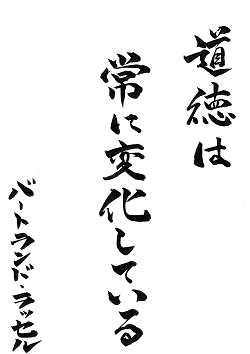 道徳は
常に変化している
バートランド・ラッセル